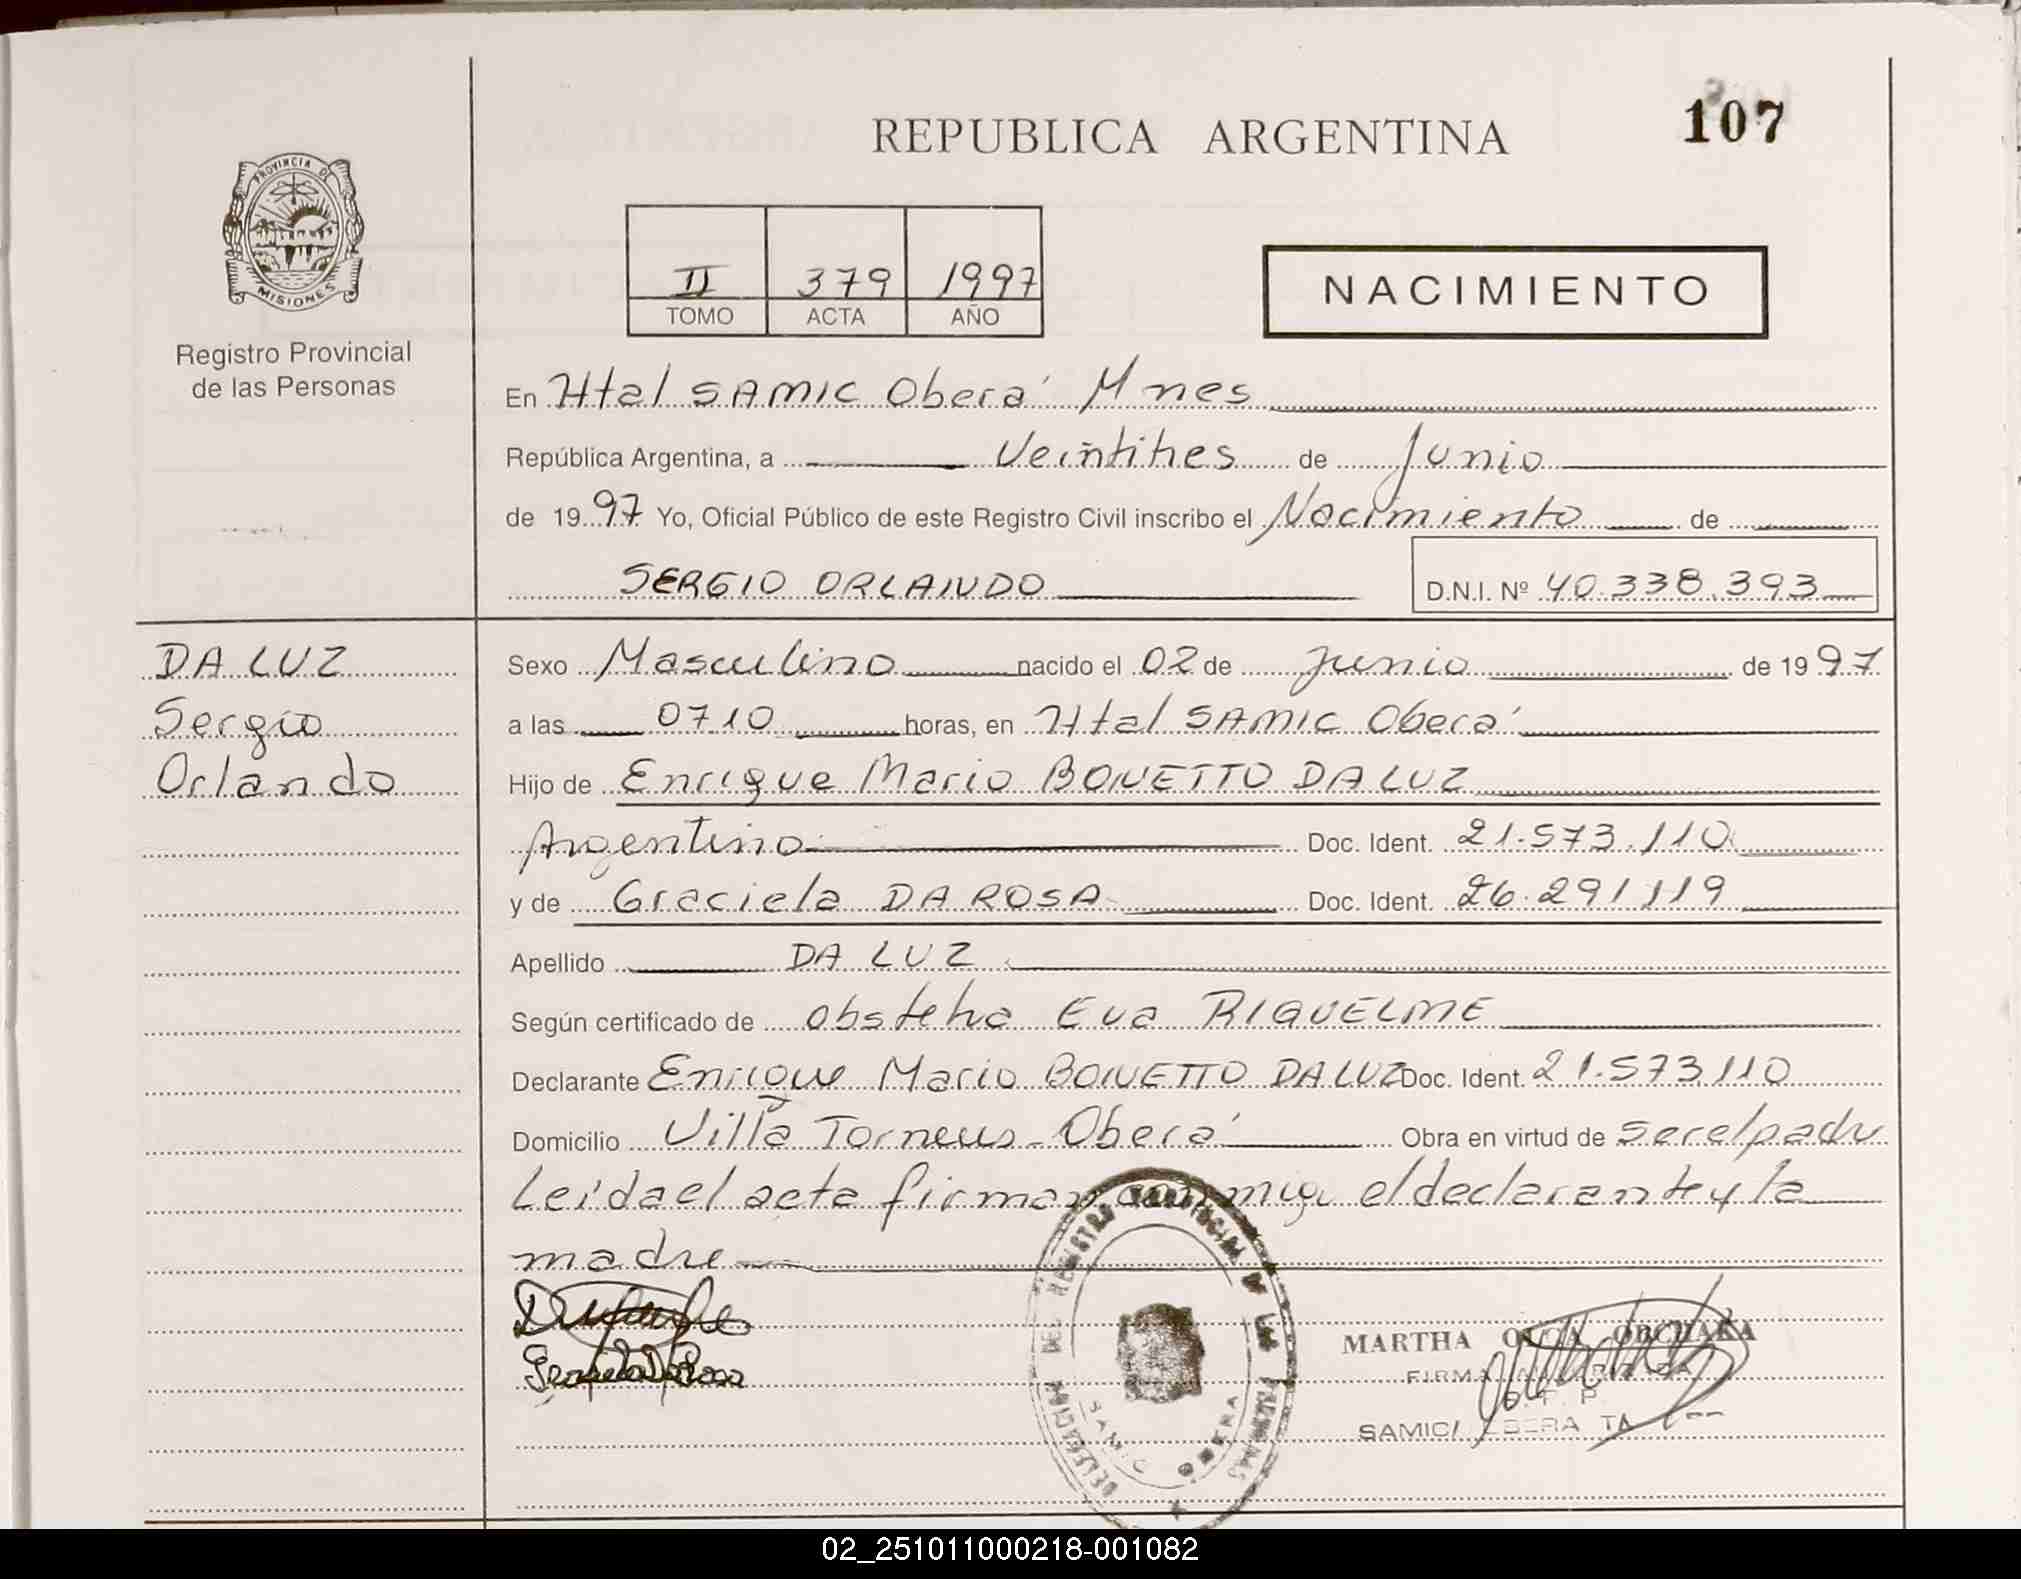 107
REPUBLICA ARGENTINA
PROVINCIA DE
MISIONES
II 379 1997
TOMO ACTA AÑO
NACIMIENTO
Registro Provincial
de las Personas
En Htal SAMIC Oberá Mnes
República Argentina, a Veintitres de Junio
de 1997 Yo, Oficial Público de este Registro Civil inscribo el Nacimiento de
SERGIO ORLANDO D.N.I. Nº 40.338.393
DA LUZ
Sergio
Orlando
Sexo Masculino nacido el 02 de junio de 1997
a las 0710 horas, en Htal SAMIC Oberá
Hijo de Enrique Mario BONETTO DA LUZ
Argentino Doc. Ident. 21.573.110
y de Graciela DA ROSA Doc. Ident. 26.291.119
Apellido DA LUZ
Según certificado de obstetra Eva RIQUELME
Declarante Enrique Mario BONETTO DA LUZ Doc. Ident. 21.573.110
Domicilio Villa Torneus - Oberá Obra en virtud de ser el padre
Leída el acta firman conmigo el declarante y la
madre
DELEGACION DEL REGISTRO PROVINCIAL DE LAS PERSONAS
SAMIC OBERA
MARTHA
FIRMA
SAMIC OBERA
02_251011000218-001082